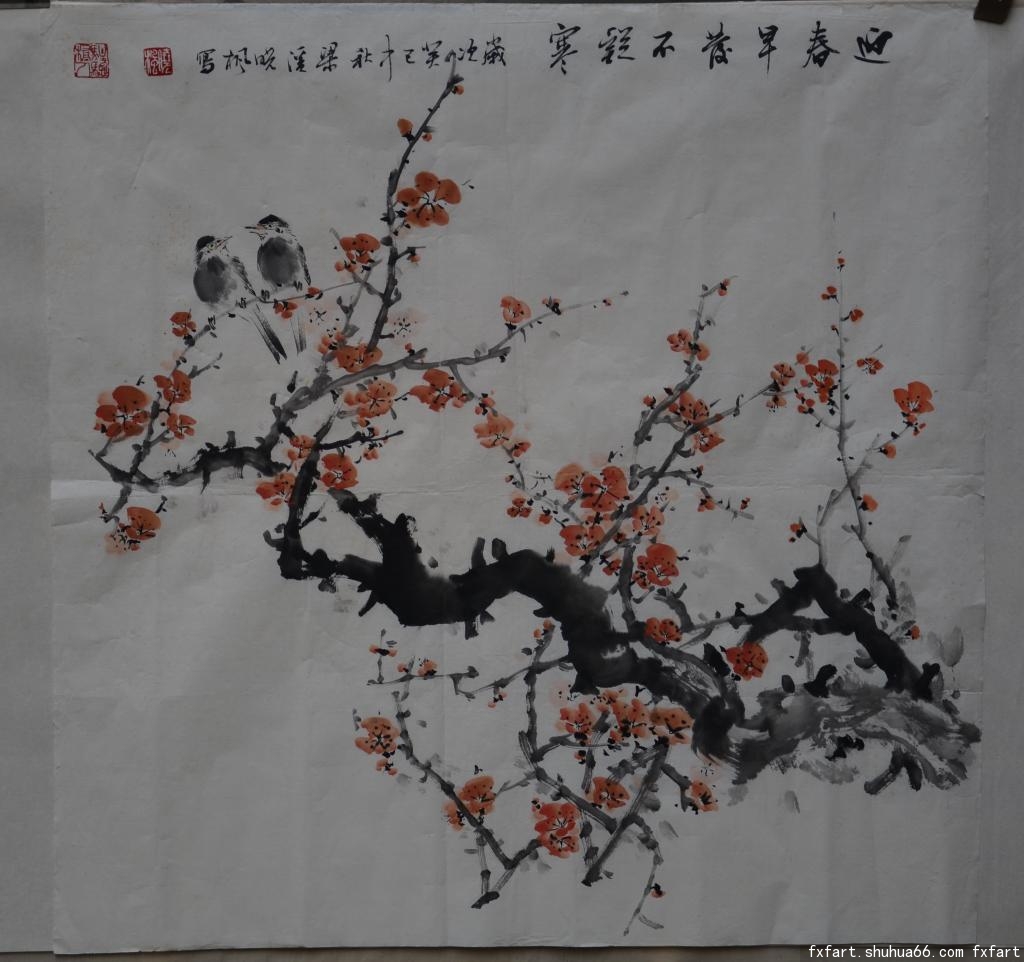 迎春早發不疑寒 歲次癸巳年秋梁溪晓枫寫
fxfart.shuhua66.com fxfart